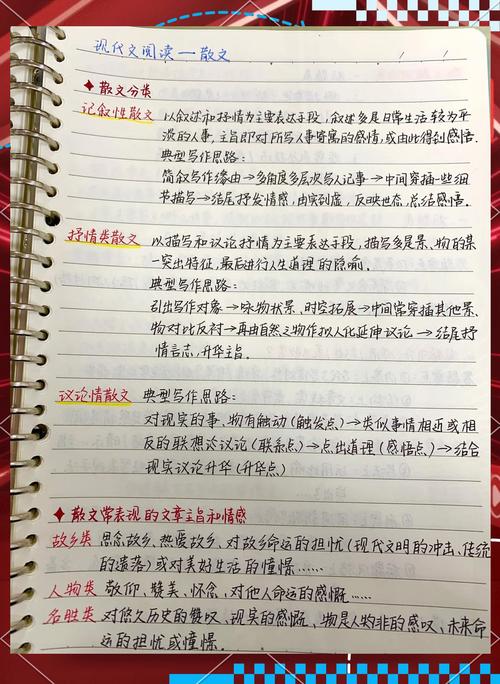 现代文阅读一散文
◆散文分类
记叙性散文 以叙述和抒情为主要表达手段,叙述多是日常生活较为平
淡的人事,主旨即对所写人事寄寓的感情,或由此得到感悟.
典型写作思路:
简叙写作缘由→多角度多层次写人记事→中间穿插一些细
节描写→结尾抒发情感,由实到虚,反映世态,总结感悟.
抒情类散文 以描写和议论抒情为主要表达手段,描写多是景、物的某
一突出特征,最后进行人生道理的隐喻.
典型写作思路:
引出写作对象→咏物状景、时空拓展→中间常穿插其他景、
物对比反衬→再由自然之物作拟人化延伸议论→结尾抒
情言志,升华主旨.
议论情散文 典型写作思路:
对现实的事、物有触动(触发点)→类似事情相近或相
反的联想论议论(联系点)→点出道理(感悟点)→结合
现实议论升华(升华点)
◆散文常表现的文章主旨和情感
故乡类 思念故乡、热爱故乡、对故乡命运的担忧(现代文明的冲击、传统
的遗落)或对美好生活的憧憬……
人物类 敬仰、赞美、怀念、对他人命运的感慨……
名胜类 对悠久历史的赞叹、现实的感慨、物是人物非的感叹、未来命
运的担忧或憧憬.